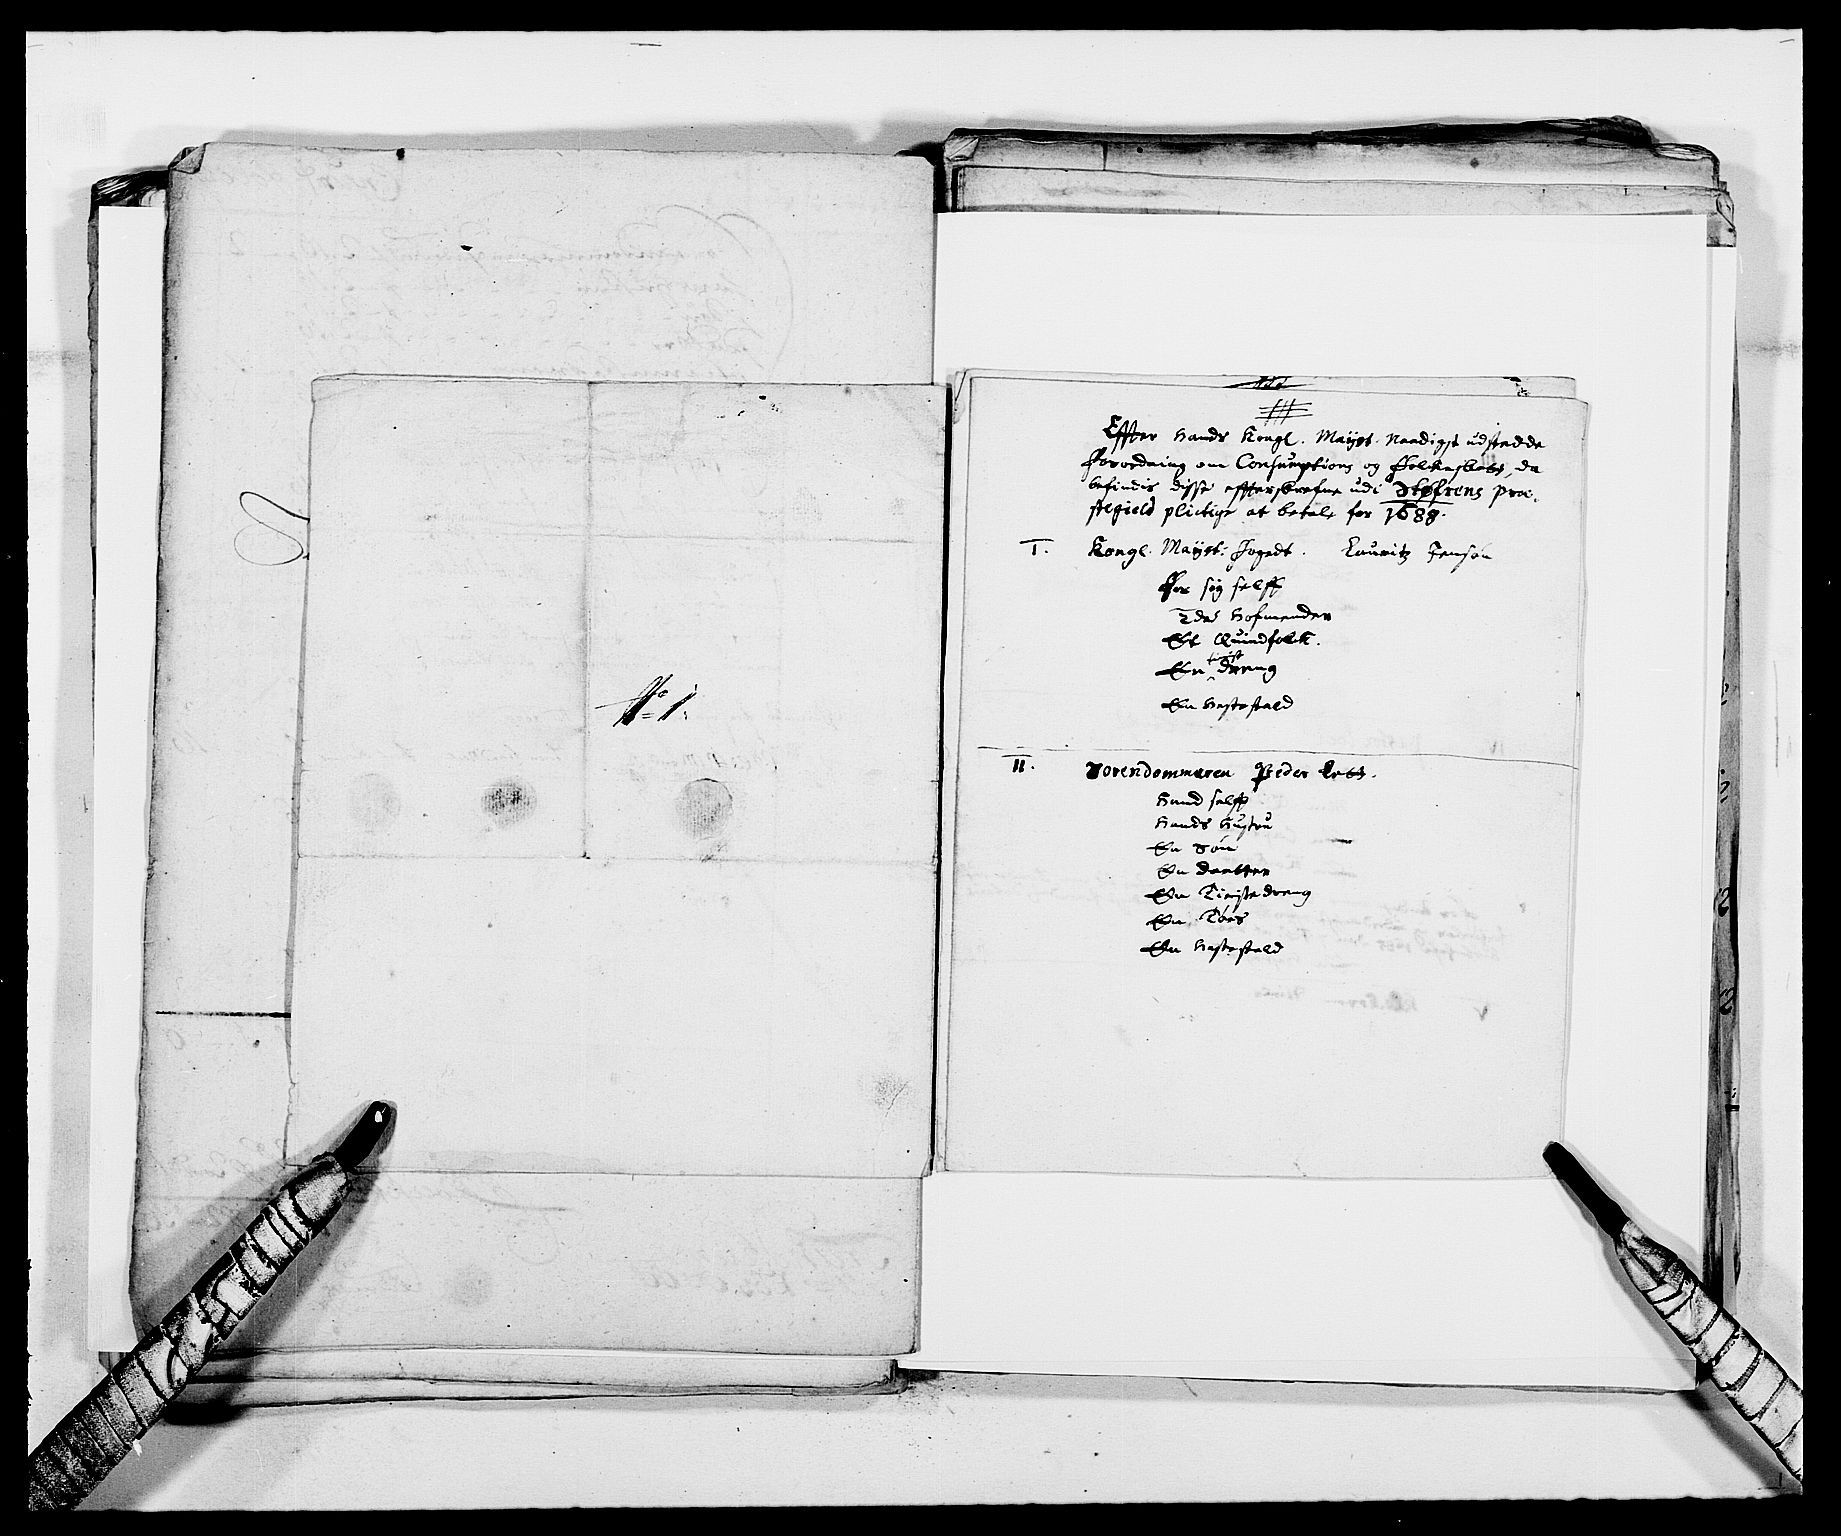 No 1.
Effter Hands Kongl. Mayst. Naadigst udstedde
Forordning om Consumptions og Folkeskatt, da
befindis disse effterskrefne udi Støfrens Præ-
stegield plictige at betale for 1688.
I. Kongl. Mayst: Fogedt. Lauritz Jensøn
For sig selff
Et Quindfolk.
En tienst dreng
En Hestestald
II. Sorendommeren Peder
Hand selff
Hands Hustru
En Søn
En daatter
En Tienstedreng
En Tøes
En Hestestald